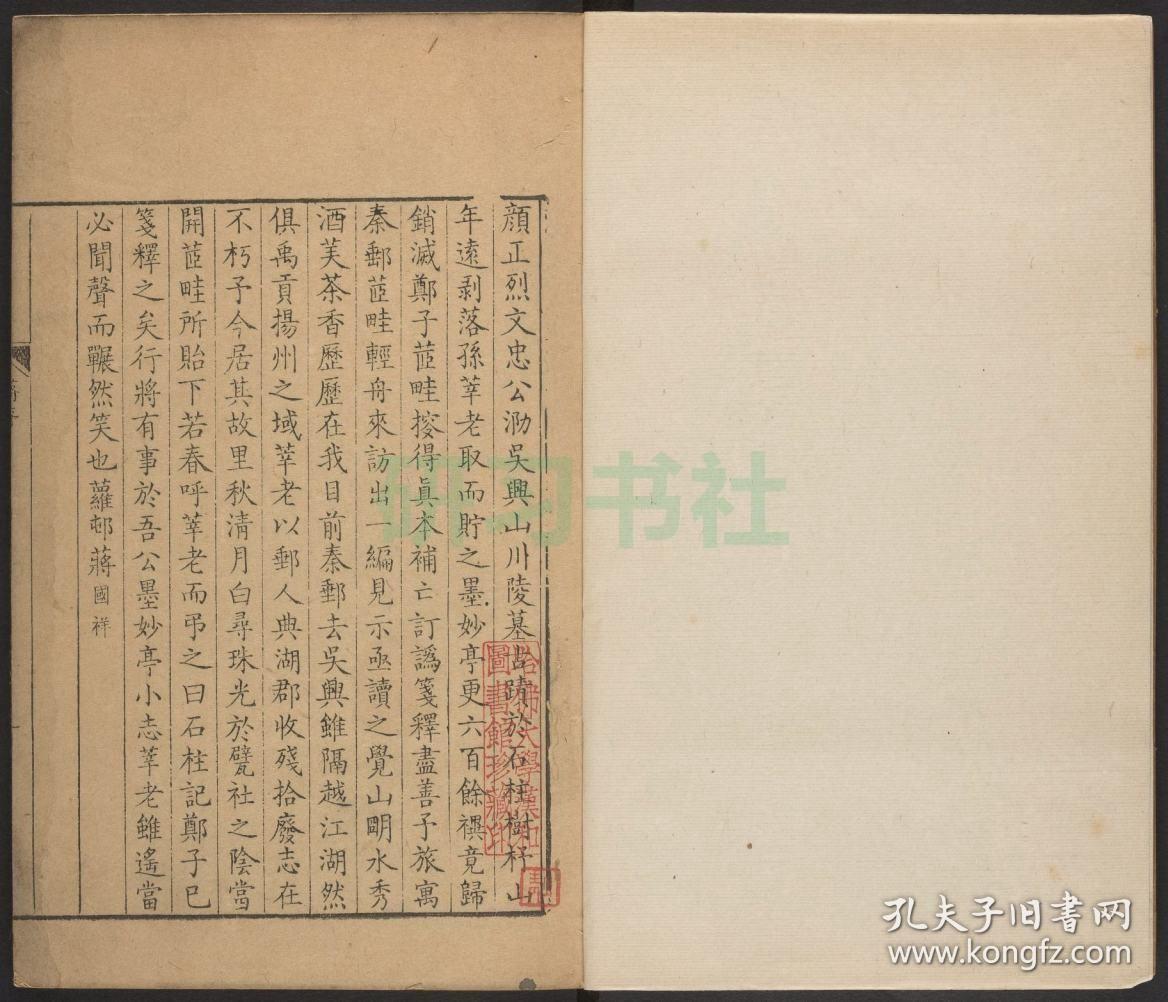 顔正烈文忠公泐吳興山川陵墓古蹟於石柱樹杼山
年遠剥落孫莘老取而貯之墨妙亭更六百餘禩竟歸
銷滅鄭子茝畦㧾得眞本補亡訂譌箋釋盡善予旅寓
秦郵茝畦輕舟來訪出一編見示亟讀之覺山眀水秀
酒芙茶香歷歷在我目前秦郵去吳興雖隔越江湖然
俱禹貢揚州之域莘老以郵人典湖郡收殘拾廢志在
不朽予今居其故里秋清月白尋珠光於甓社之陰當
開茝畦所貽下若春呼莘老而弔之曰石柱記鄭子已
箋釋之矣行將有事於吾公墨妙亭小志莘老雖遙當
必聞聲而囅然笑也蘿邨蔣國祥
哈佛大學漢和
圖書館珍藏印
研习书社
孔夫子旧书网
www.kongfz.com